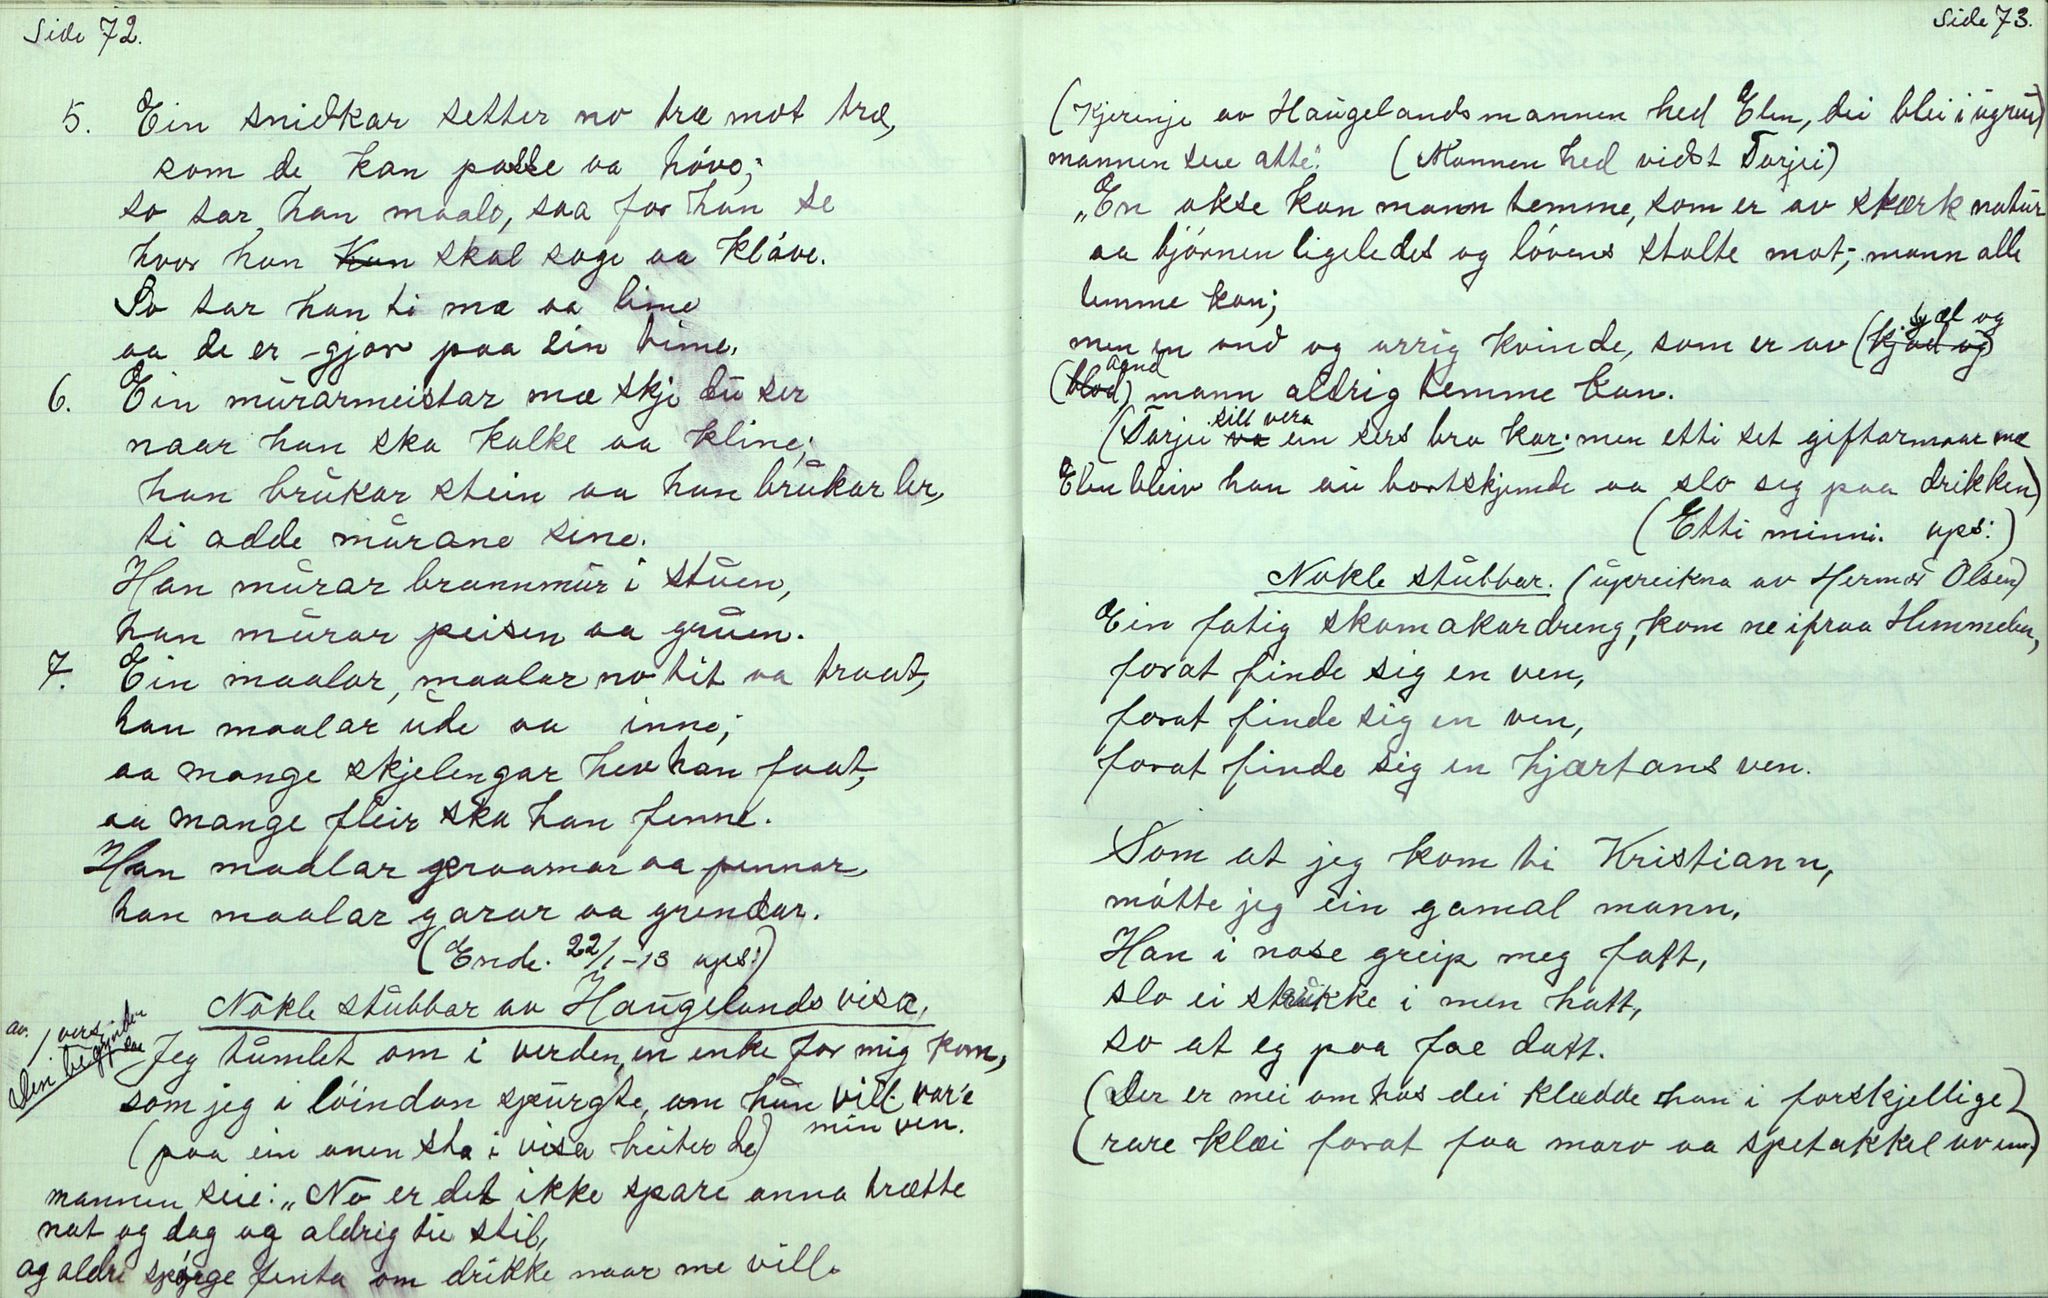 Side 72.
5. Ein snidkar setter no træ mot træ,
som de kan passe aa hóvo;
so tar han maalo, saa far han se
hvor han Kan skal sage aa klóve.
So tar han ti mæ aa lime
aa de er -gjor paa ein time.
6. Ein mūrarmeistar mæ skje dū ser
naar han ska kalke aa kline;
han brūkar stein aa han brūkar ler,
ti adde mūrane sine.
Han mūrar brannmūr i stūen,
han mūrar peisen aa grūen.
7. Ein maalar, maalar no tit aa traat,
han maalar ūde aa inne;
aa mange skjelengar hev han faat,
aa mange fleir ska han finne.
Han maalar graamar aa pinnar,
han maalar garar aa grendar.
(Ende. 22/1-13 ops:)
Nokle stūbbar av Haūgelands visa,
av 1 vers
den begynder saa
Jeg tūmlet om i verden, en enke for mig kom,
som jeg i lóindan spūrgte, om hūn vill var'e
min ven.
(paa ein anen sta i visa heiter de)
mannen seie: „No er det ikke spare anna trætte
nat og dag og aldrig tie stil,
og aldri spórge fenta om drikke naar me vill.
Side 73.
(Kjeringe av Haūgelandsmannen hed Elen, dei blei i ūgreū)
mannen seie atte". (Mannen hed vidst Tarjei)
„En okse kan mann temme, som er av stærk natūr
aa bjórnen ligeledes og lóvens stolte mot; mann alle
temme kan;
men en ond og arrig kvinde, som er av (kjød og) sjæl og
(blod) aand mann aldrig temme kan.
(Tarjei va sill vera ein sers bra kar; men etti set giftarmaar mæ
Elen bleiv han ūi bortskjemde aa slo seg paa drikken)
(Etti minni. ops:)
Nokle stūbbar. (ūpreikna av Herman Olsen)
Ein fatig skomakardreng, kom ne ifraa Himmelen,
forat finde sig en ven,
forat finde sig en ven,
forat finde sig en hjærtans ven.
Som at jeg kom ti Kristiann,
mótte jeg ein gamal mann,
Han i nase greip meg fatt,
slo ei stūkke i men hatt,
so at eg paa foe datt.
(Der er mei om hos dei klædde han i forskjellige)
(rare klæi forat faa maro aa spetakkel av en)